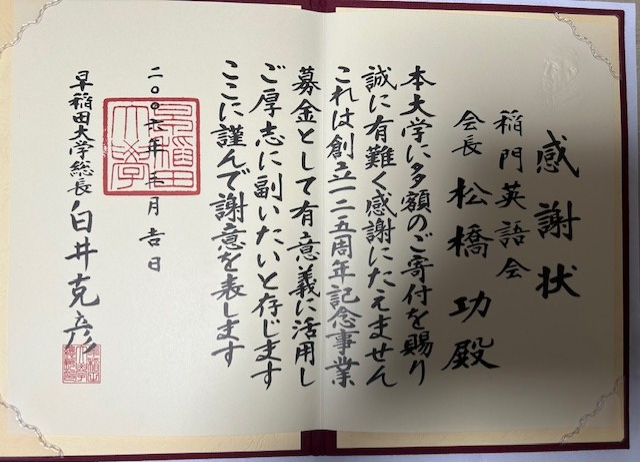 感謝状
稲門英語会
会長 松橋功殿
本大学に多額のご寄付を賜り
誠に有難く感謝にたえません
これは創立一二五周年記念事業
募金として有意義に活用し
ご厚志に副いたいと存じます
ここに謹んで謝意を表します
二〇〇 年 月吉日
早稲田大学総長 白井克彦
早稲田大学